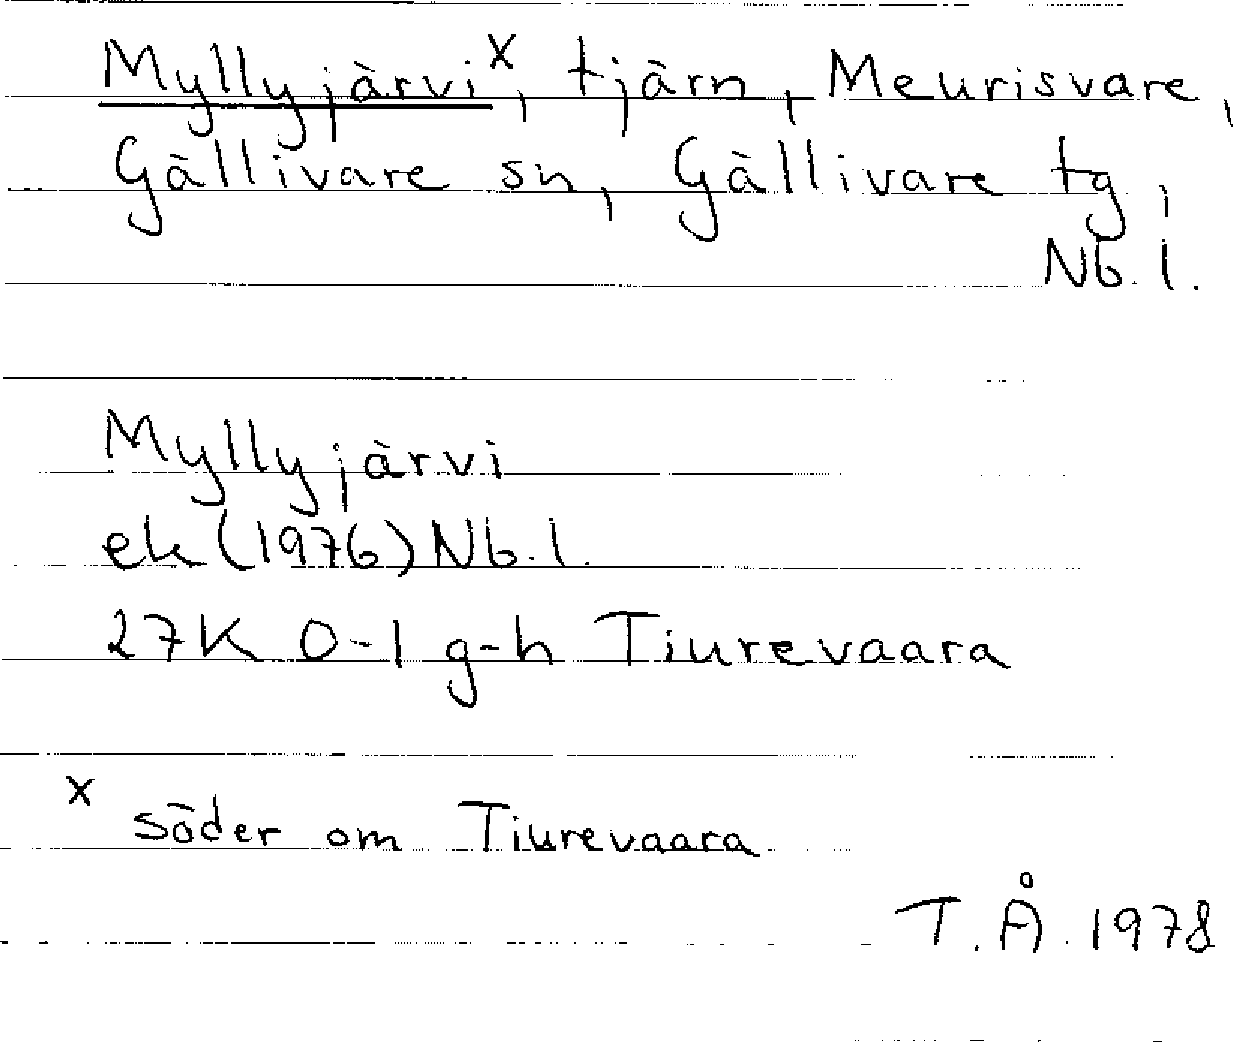 Myllyjärvi x, tjärn, Meurisvare,
Gällivare sn, Gällivare tg,
Nb. l.
Myllyjärvi
ek (1976) Nb. l.
27K 0-1 g-h Tiurevaara
x söder om Tiurevaara
T. Å. 1978